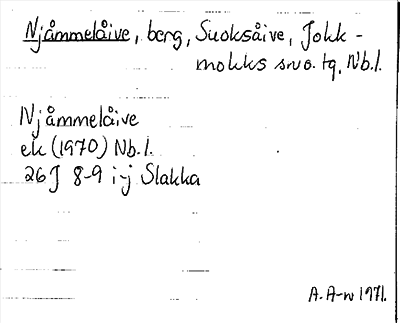 Njåmmelåive, berg, Suoksåive, Jokk-
mokks sn o. tg, Nb.l.
Njåmmelåive
ek (1970) Nb.l.
26J 8-9 i-j Slakka
A. A-n 1971.